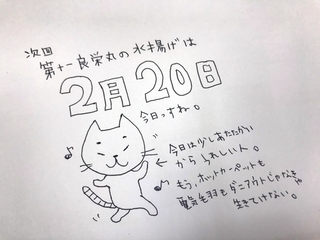 次回
第十一良栄丸の水揚げは
2月20日
今日っすね。
今日は少しあたたかい
からうれしい人。
もう、ホットカーペットも
電気毛羽もダニアウトじゃなきゃ
生きてけない。